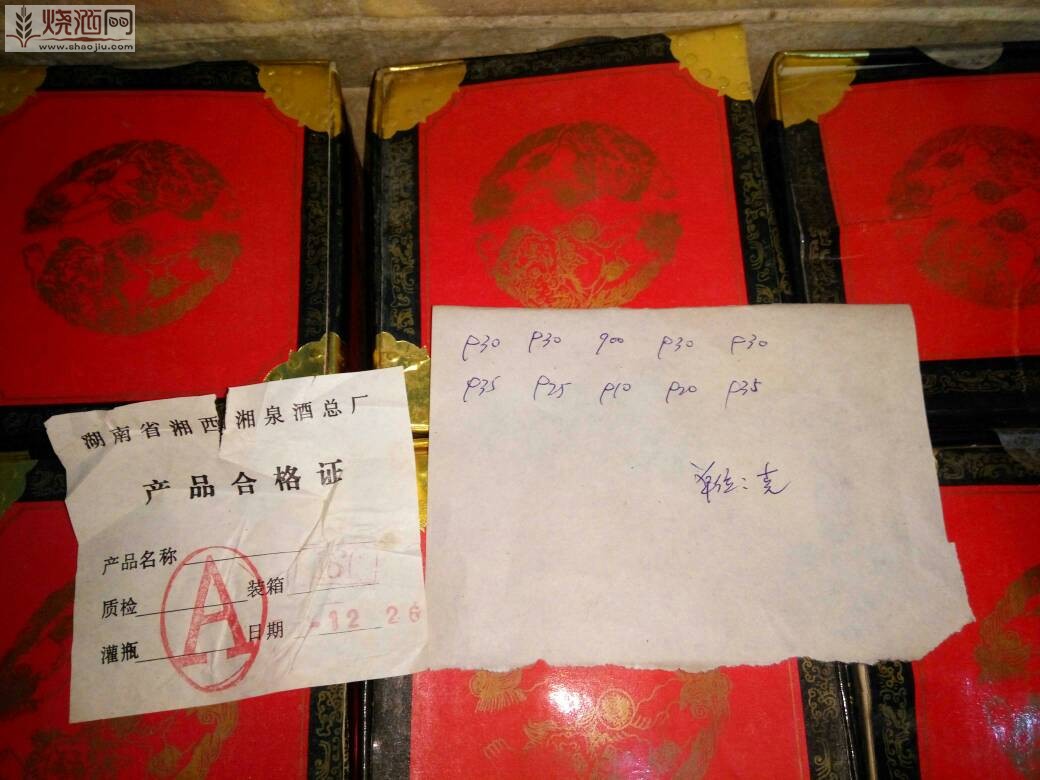 烧酒网
www.shaojiu.com
湖南省湘西湘泉酒总厂
产品合格证
产品名称
质检 装箱
灌瓶 日期 -12 26
A
930 930 900 930 930
935 925 910 920 935
单位:克